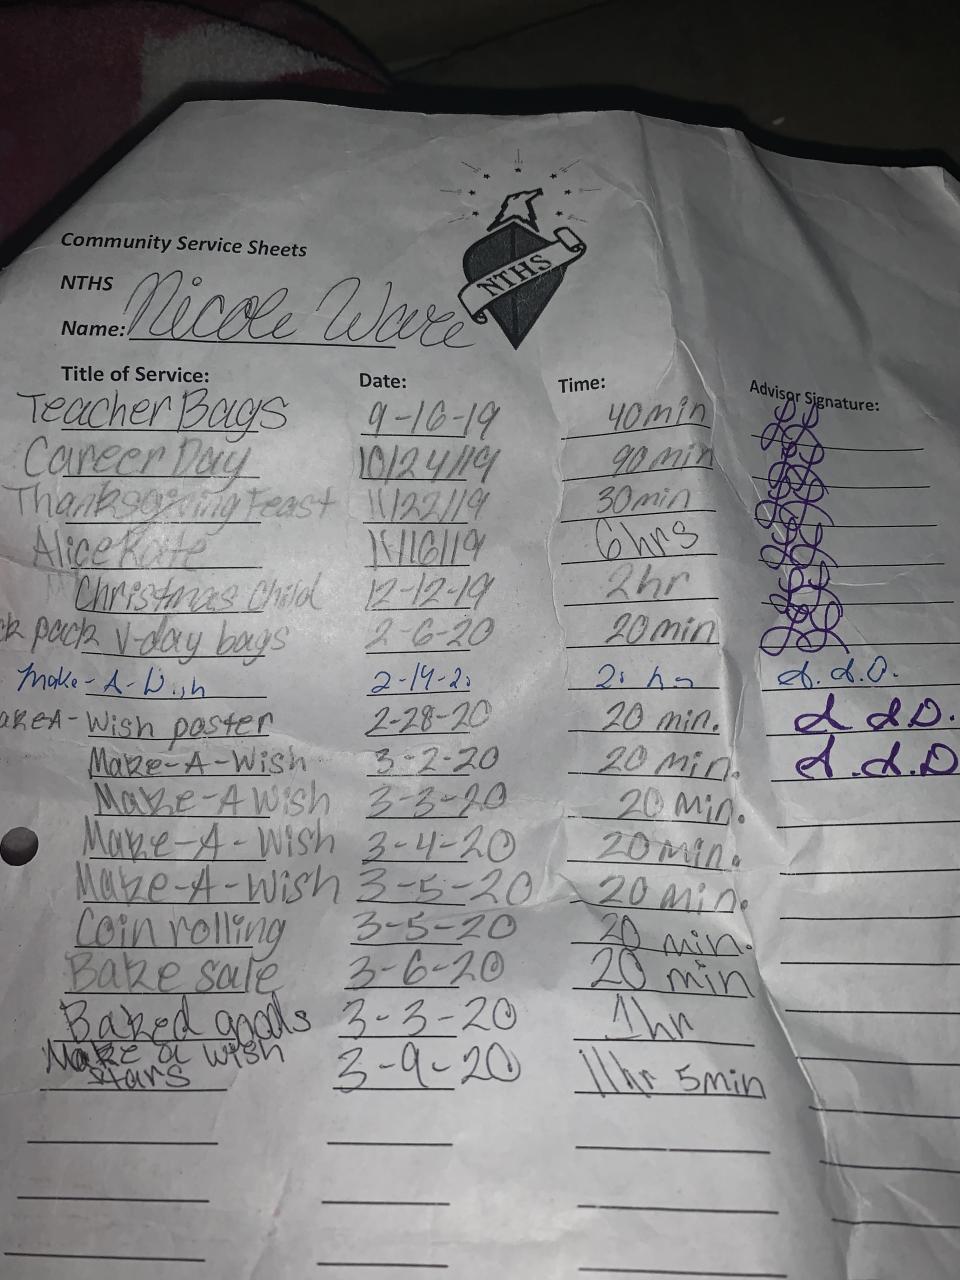 NTHS
Community Service Sheets
NTHS
Name: Nicole Ware
Title of Service: Date: Time: Advisor Signature:
Teacher Bags 9-16-19 40min
Career Day 10/24/19 90 min
Thanksgiving Feast 11/22/19 30min
Alice Kate 11/16/19 6hrs
Christmas Child 12-12-19 2hr
ck pack V-day bags 2-6-20 20min
Make-A-Wish 2-14-20
akeA-Wish poster 2-28-20 20 min. d d D.
Make-A-Wish 3-2-20 20 Min. d.d.D
Make-A Wish 3-3-20 20 Min.
Make-A-Wish 3-4-20 20 Min.
Make-A-Wish 3-5-20 20 Min.
Coin rolling 3-5-20 20 min.
Bake sale 3-6-20 20 min
Baked goods 3-3-20 1hr
Make a wish 3-9-20 11hr 5min
stars